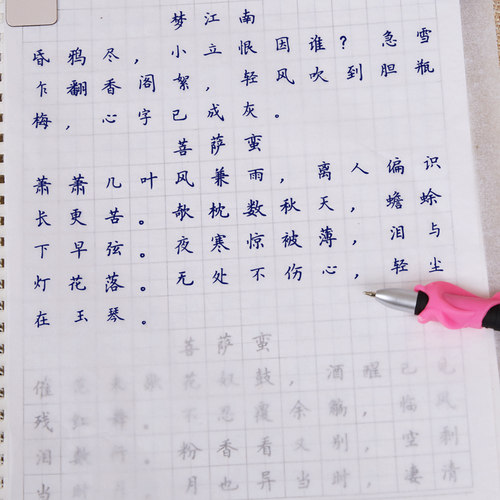 梦江南
昏鸦尽，小立恨因谁？急雪
乍翻香阁絮，轻风吹到胆瓶
梅，心字已成灰。
菩萨蛮
萧萧几叶风兼雨，离人偏识
长更苦。欹枕数秋天，蟾蜍
下早弦。夜寒惊被薄，泪与
灯花落。无处不伤心，轻尘
在玉琴。
菩萨蛮
催花未歇花奴鼓，酒醒已见
残红舞。不忍覆余觞，临风
泪数行。粉香看又别，空剩
当时月。月也异当时，凄清